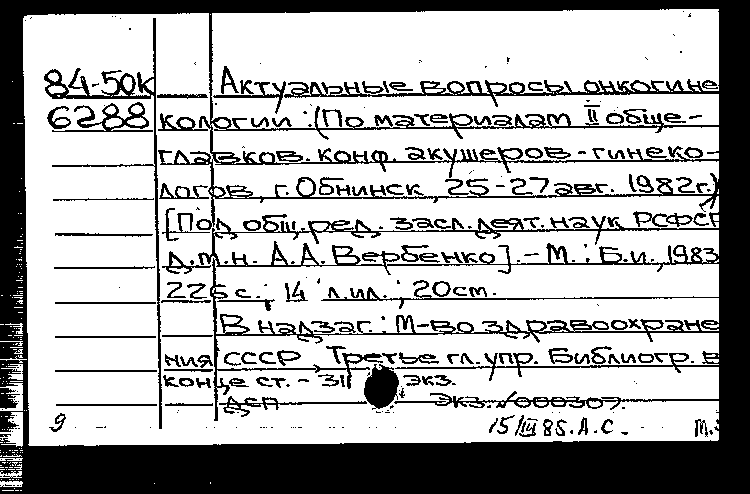 84-50к Актуальные вопросы онкогине
6288 кологии : (По материалам II обще-
главков. конф. акушеров-гинеко-
логов, г. Обнинск, 25-27 авг. 1982г.)
[Под общ. ред. засл. деят. наук РСФСР
д.м.н. А.А. Вербенко]. - М. : Б.и., 1983
226 с. ; 14 л.ил. ; 20см.
В надзаг. : М-во здравоохране
ния СССР, Третье гл. упр. Библиогр. в
конце ст. - 311 экз.
ДСП Экз. №000307.
9 15/III 85. А.С. М.